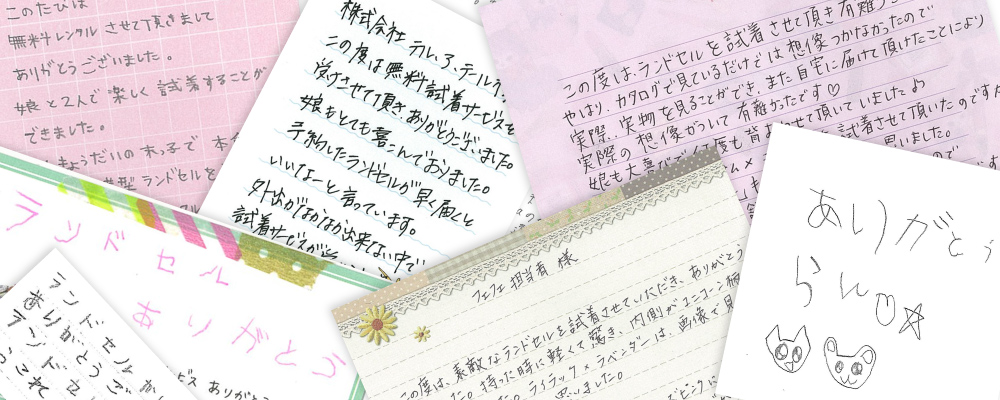 このたびは
無料レンタル させて頂きまして
ありがとうございました。
娘と2人で 楽しく 試着することが
できました。
きょうだいの末っ子で 本
型 ランドセルを
株式会社 テル.ア.テール
この度は無料試着サービスを
受けさせて頂き、ありがとうございました。
娘もとても喜んでおりました。
予約したランドセルが早く届くと
いいなーと言っています。
外出がなかなか出来ない中で
試着サービスが
この度は、ランドセルを試着させて頂き有難う
やはり、カタログで見ているだけでは想像つかなかったので
実際、実物を見ることができ、また自宅に届けて頂けたことにより
実際の想像がついて有難かったです♡
娘も大喜びで何度も背
頂いていました♪
試着させて頂いたのですが
思いました。
ランドセル
ありがとう
ありがと
ランドセルか
ありがとうご
ランドセ
フェフェ担当者 様
この度は、素敵なランドセルを試着させていただき、ありがとう
た。持った時に軽くて驚き、内側がユニコーン柄
た。ライラック×ラベンダーは、画像で見
思いました。
ピンクに
ありがとう
らん♡☆